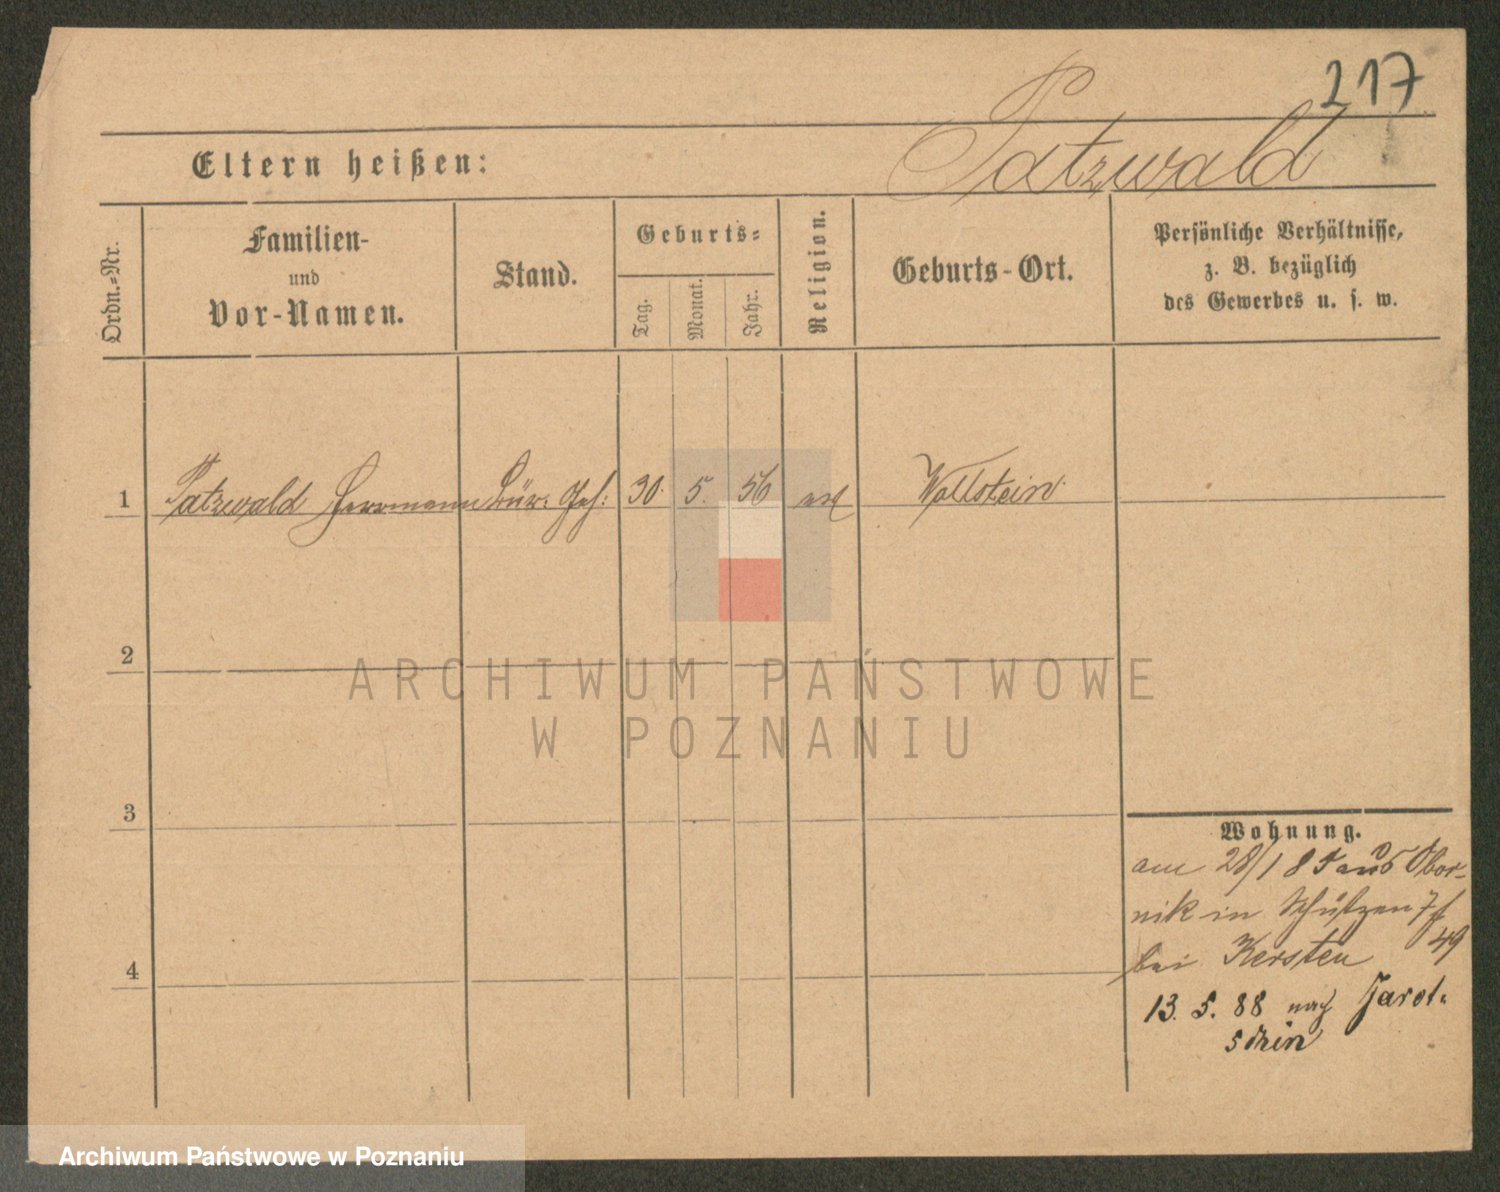 217
Patzwald
Eltern heißen:
Ordn.-Nr.
Familien-
und
Vor-Namen.
Stand.
Geburts-
Tag.
Monat.
Jahr.
Religion.
Geburts-Ort.
Persönliche Verhältnisse,
z. B. bezüglich
des Gewerbes u. s. w.
1 Patzwald Herrmann Bür. Geh: 30. 5. 56 Wollstein
2
ARCHIWUM PAŃSTWOWE
W POZNANIU
3
Wohnung.
am 28/1 85 aus Obor-
nik in Schützen
49
bei Kersten
4
13. 5. 88 nach Jarot-
schin
Archiwum Państwowe w Poznaniu